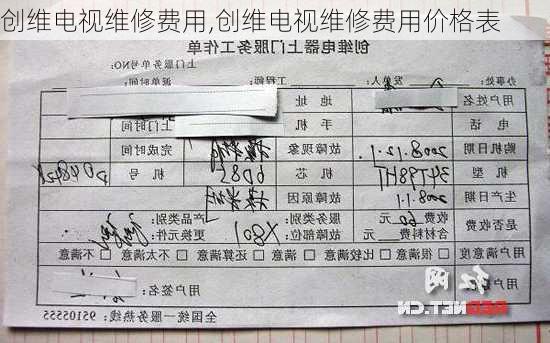 创维电视维修费用,创维电视维修费用价格表
创维电器上门服务工作单
上门服务单号NO:
办事处: 发单人: 工程师: 派单时间:
用户姓名 地址
电话 手机 上门时间
购机日期 2008.12.1 故障现象 完成时间
机型 34T98HT 机芯 6D82 机号
生产日期 2008.1.1 故障原因
是否收费 收费 60 元 服务类别: 产品类别:
含材料费 元 故障部位: X801 更换元件:
用户满意度 □满意 □很满意 □比较满意 □还算满意 □不太满意 □不满意
用户签名
全国统一服务热线: 95105555
红网
REDNET.CN